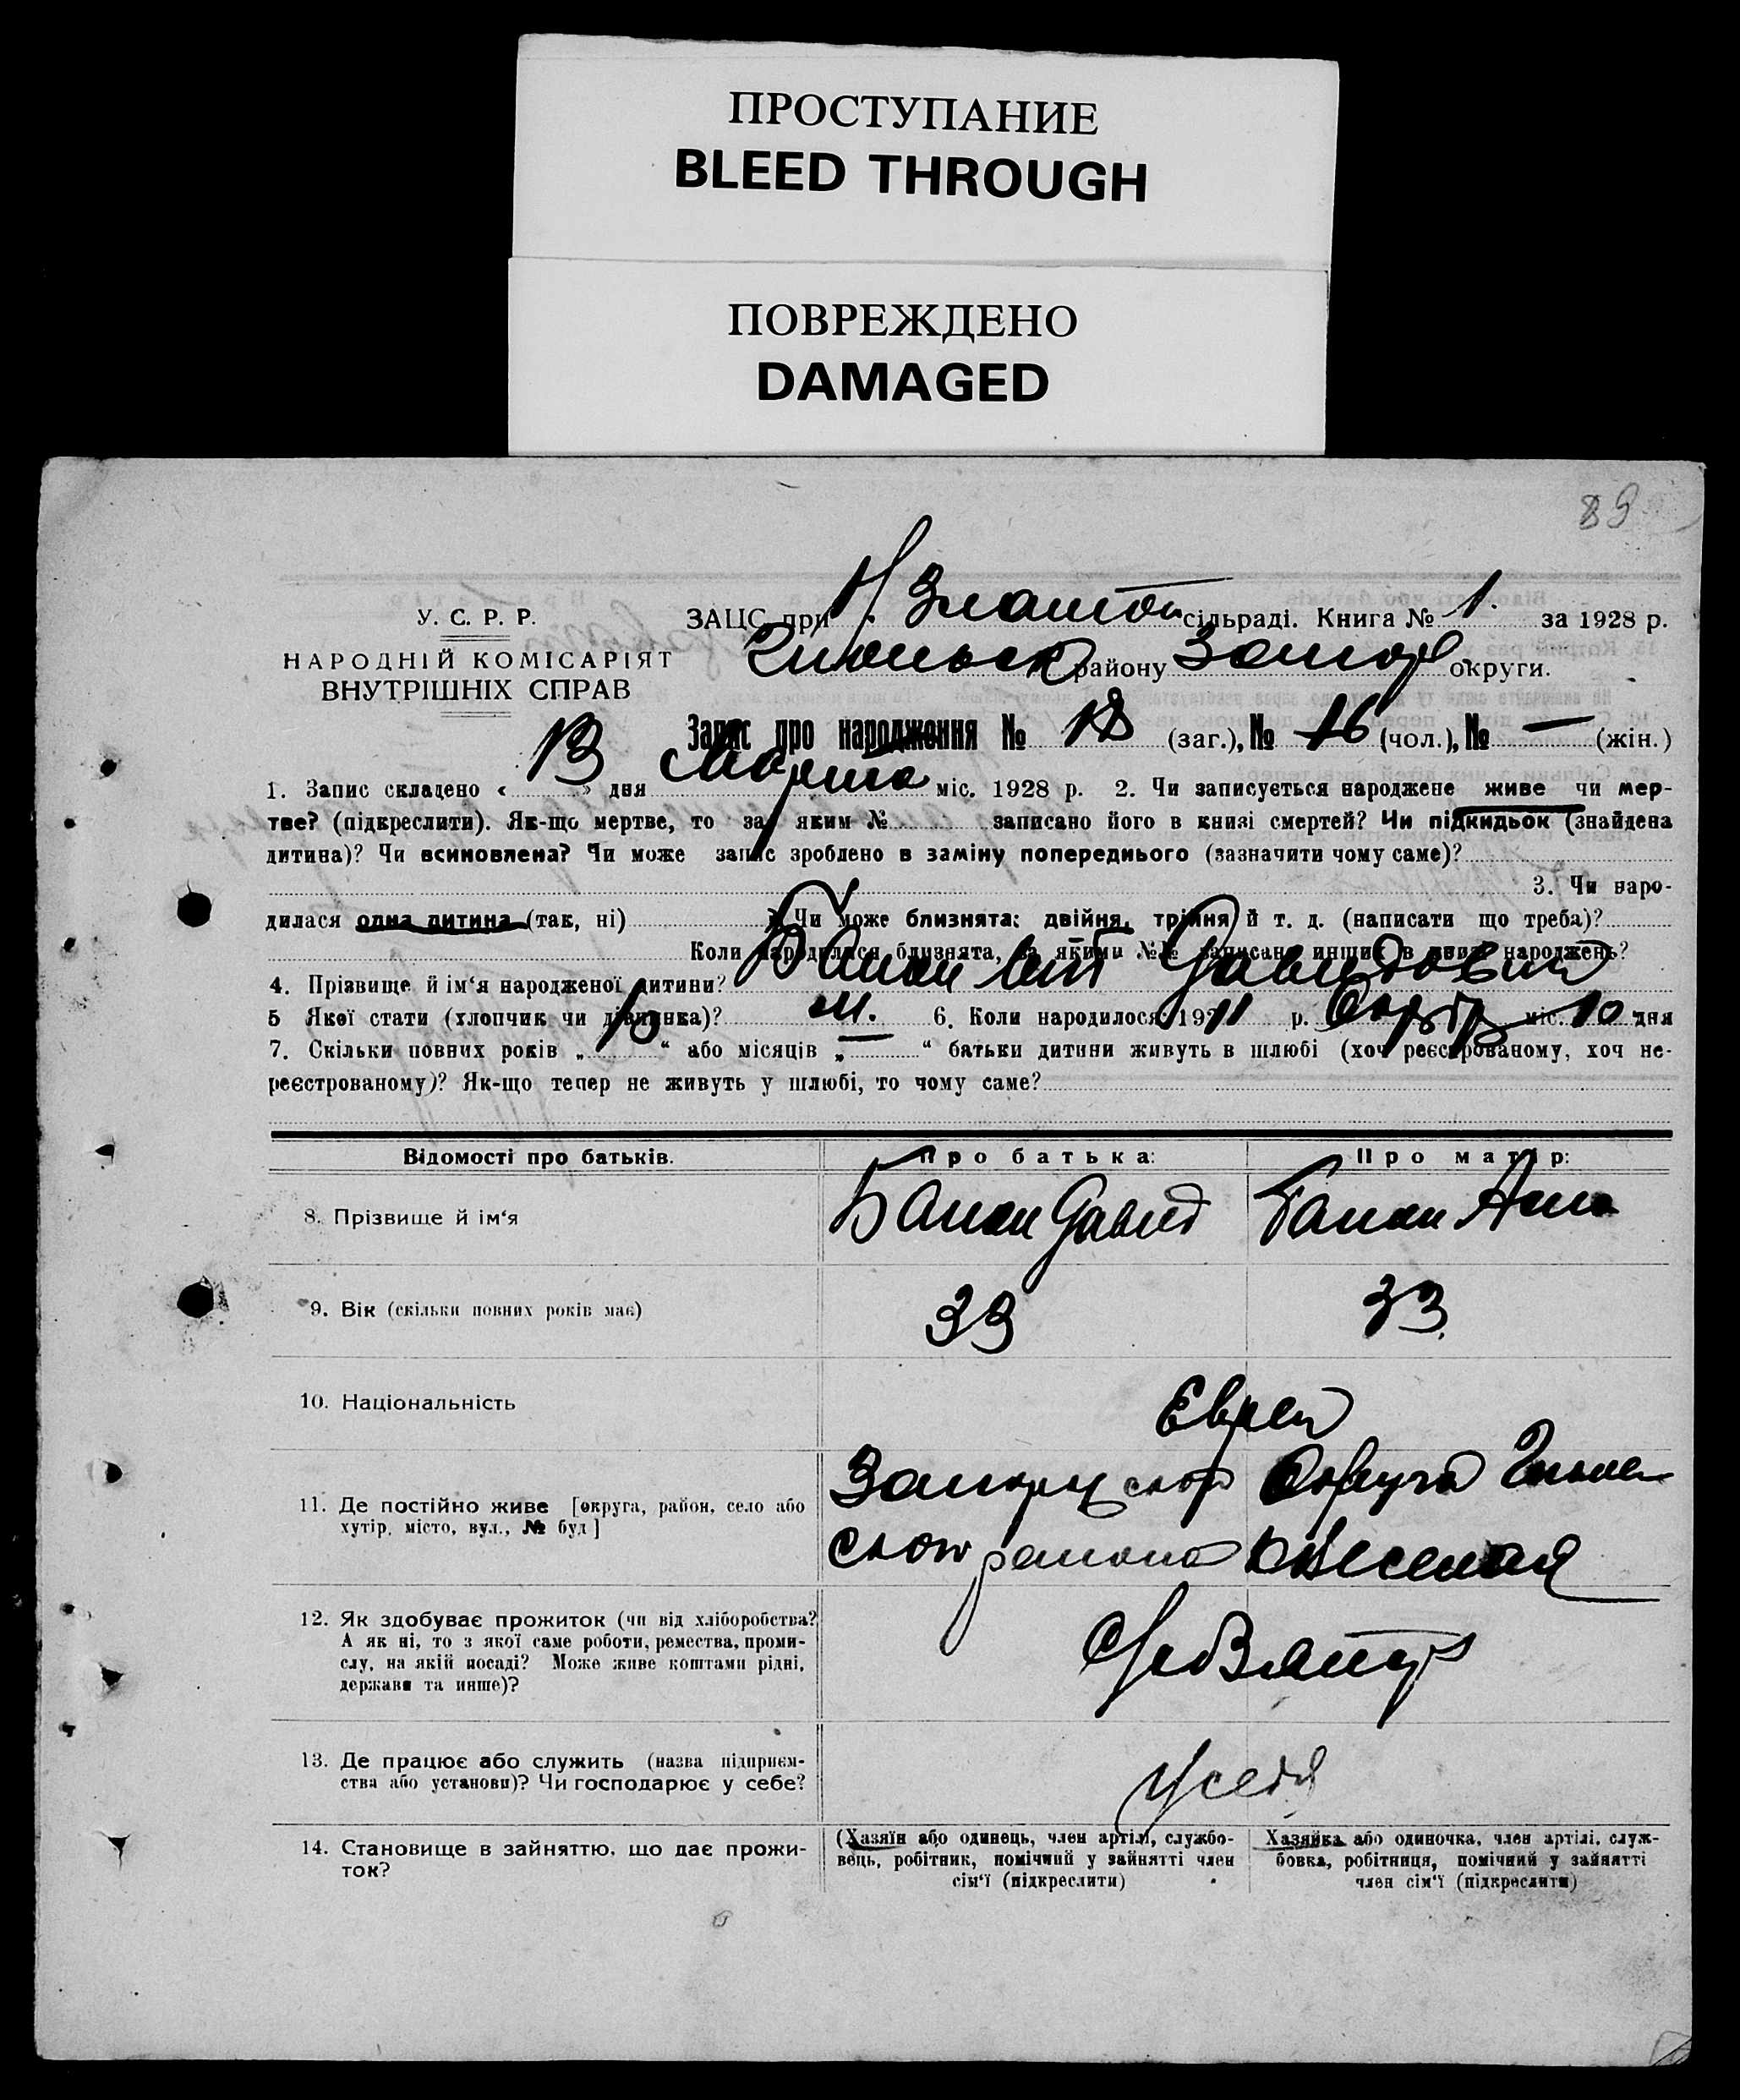 ПРОСТУПАНИЕ
BLEED THROUGH
ПОВРЕЖДЕНО
DAMAGED
89
У. С. Р. Р.
НАРОДНІЙ КОМІСАРІЯТ
ВНУТРІШНІХ СПРАВ
ЗАЦС при Н/Златоп сільраді. Книга № 1. за 1928 р.
району Запор округи.
Запис про народження № 18 (заг.), № 16 (чол.), № — (жін.)
1. Запис складено « 13 » дня Марта міс. 1928 р. 2. Чи записується народжене живе чи мер-
тве? (підкреслити). Як-що мертве, то за яким № записано його в книзі смертей? Чи підкидьок (знайдена
дитина)? Чи всиновлена? Чи може запис зроблено в заміну попереднього (зазначити чому саме)?
3. Чи наро-
дилася одна дитина (так, ні) Чи може близнята: двійня, трійня й т. д. (написати що треба)?
Коли народилися близнята, за якими №№ записано инших в книзі народжень?
4. Прізвище й ім‘я народженої дитини? Давидович
5 Якої стати (хлопчик чи дівчинка)? м. 6. Коли народилося 1911 р. міс. 10 дня
7. Скільки повних років „ “ або місяців „ — “ батьки дитини живуть в шлюбі (хоч реєстрованому, хоч не-
реєстрованому)? Як-що тепер не живуть у шлюбі, то чому саме?
Відомості про батьків. Про батька: Про матір:
8. Прізвище й ім‘я Давид Анна
9. Вік (скільки повних років має) 33 33
10. Національність Евреи
11. Де постійно живе [округа, район, село або
хутір, місто, вул., № буд] Округа
района
12. Як здобуває прожиток (чи від хліборобства?
А як ні, то з якої саме роботи, ремества, проми-
слу, на якій посаді? Може живе коштами рідні,
держави та инше)?
13. Де працює або служить (назва підприєм-
ства або установи)? Чи господарює у себе? У себя
14. Становище в зайняттю, що дає прожи-
ток?
(Хазяїн або одинець, член артілі, службо-
вець, робітник, помічний у зайнятті член
сім‘ї (підкреслити)
Хазяйка або одиночка, член артілі, служ-
бовка, робітниця, помічний у зайнятті
член сім‘ї (підкреслити)